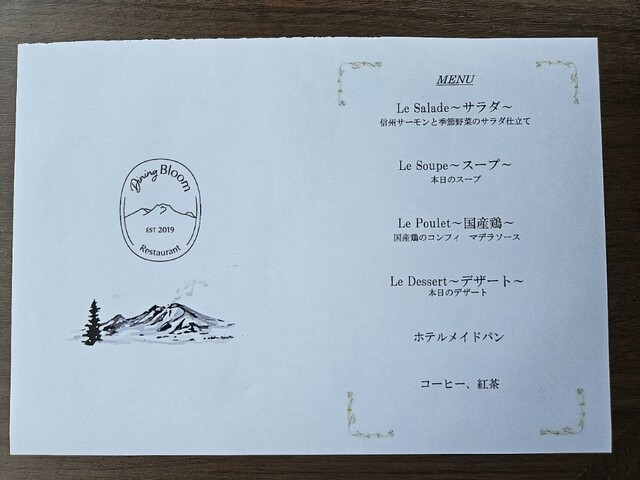 Dining Bloom
EST 2019
Restaurant
MENU
Le Salade～サラダ～
信州サーモンと季節野菜のサラダ仕立て
Le Soupe～スープ～
本日のスープ
Le Poulet～国産鶏～
国産鶏のコンフィ　マデラソース
Le Dessert～デザート～
本日のデザート
ホテルメイドパン
コーヒー、紅茶